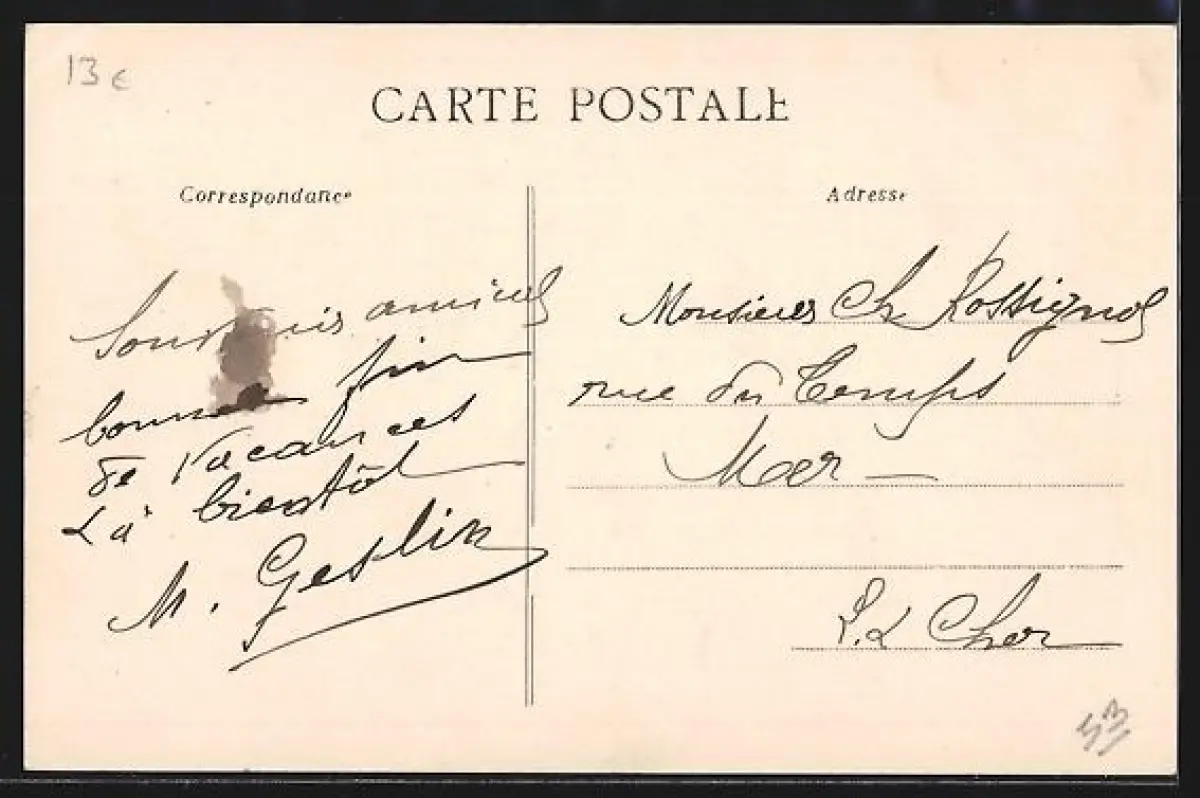 13 €
CARTE POSTALE
Correspondance
Adresse
Souvenirs amicals
bonne fin
de vacances
& à bientôt
M. Geslin
Monsieur Ch Rossignol
rue du Temps
Mer
L. & Cher
53